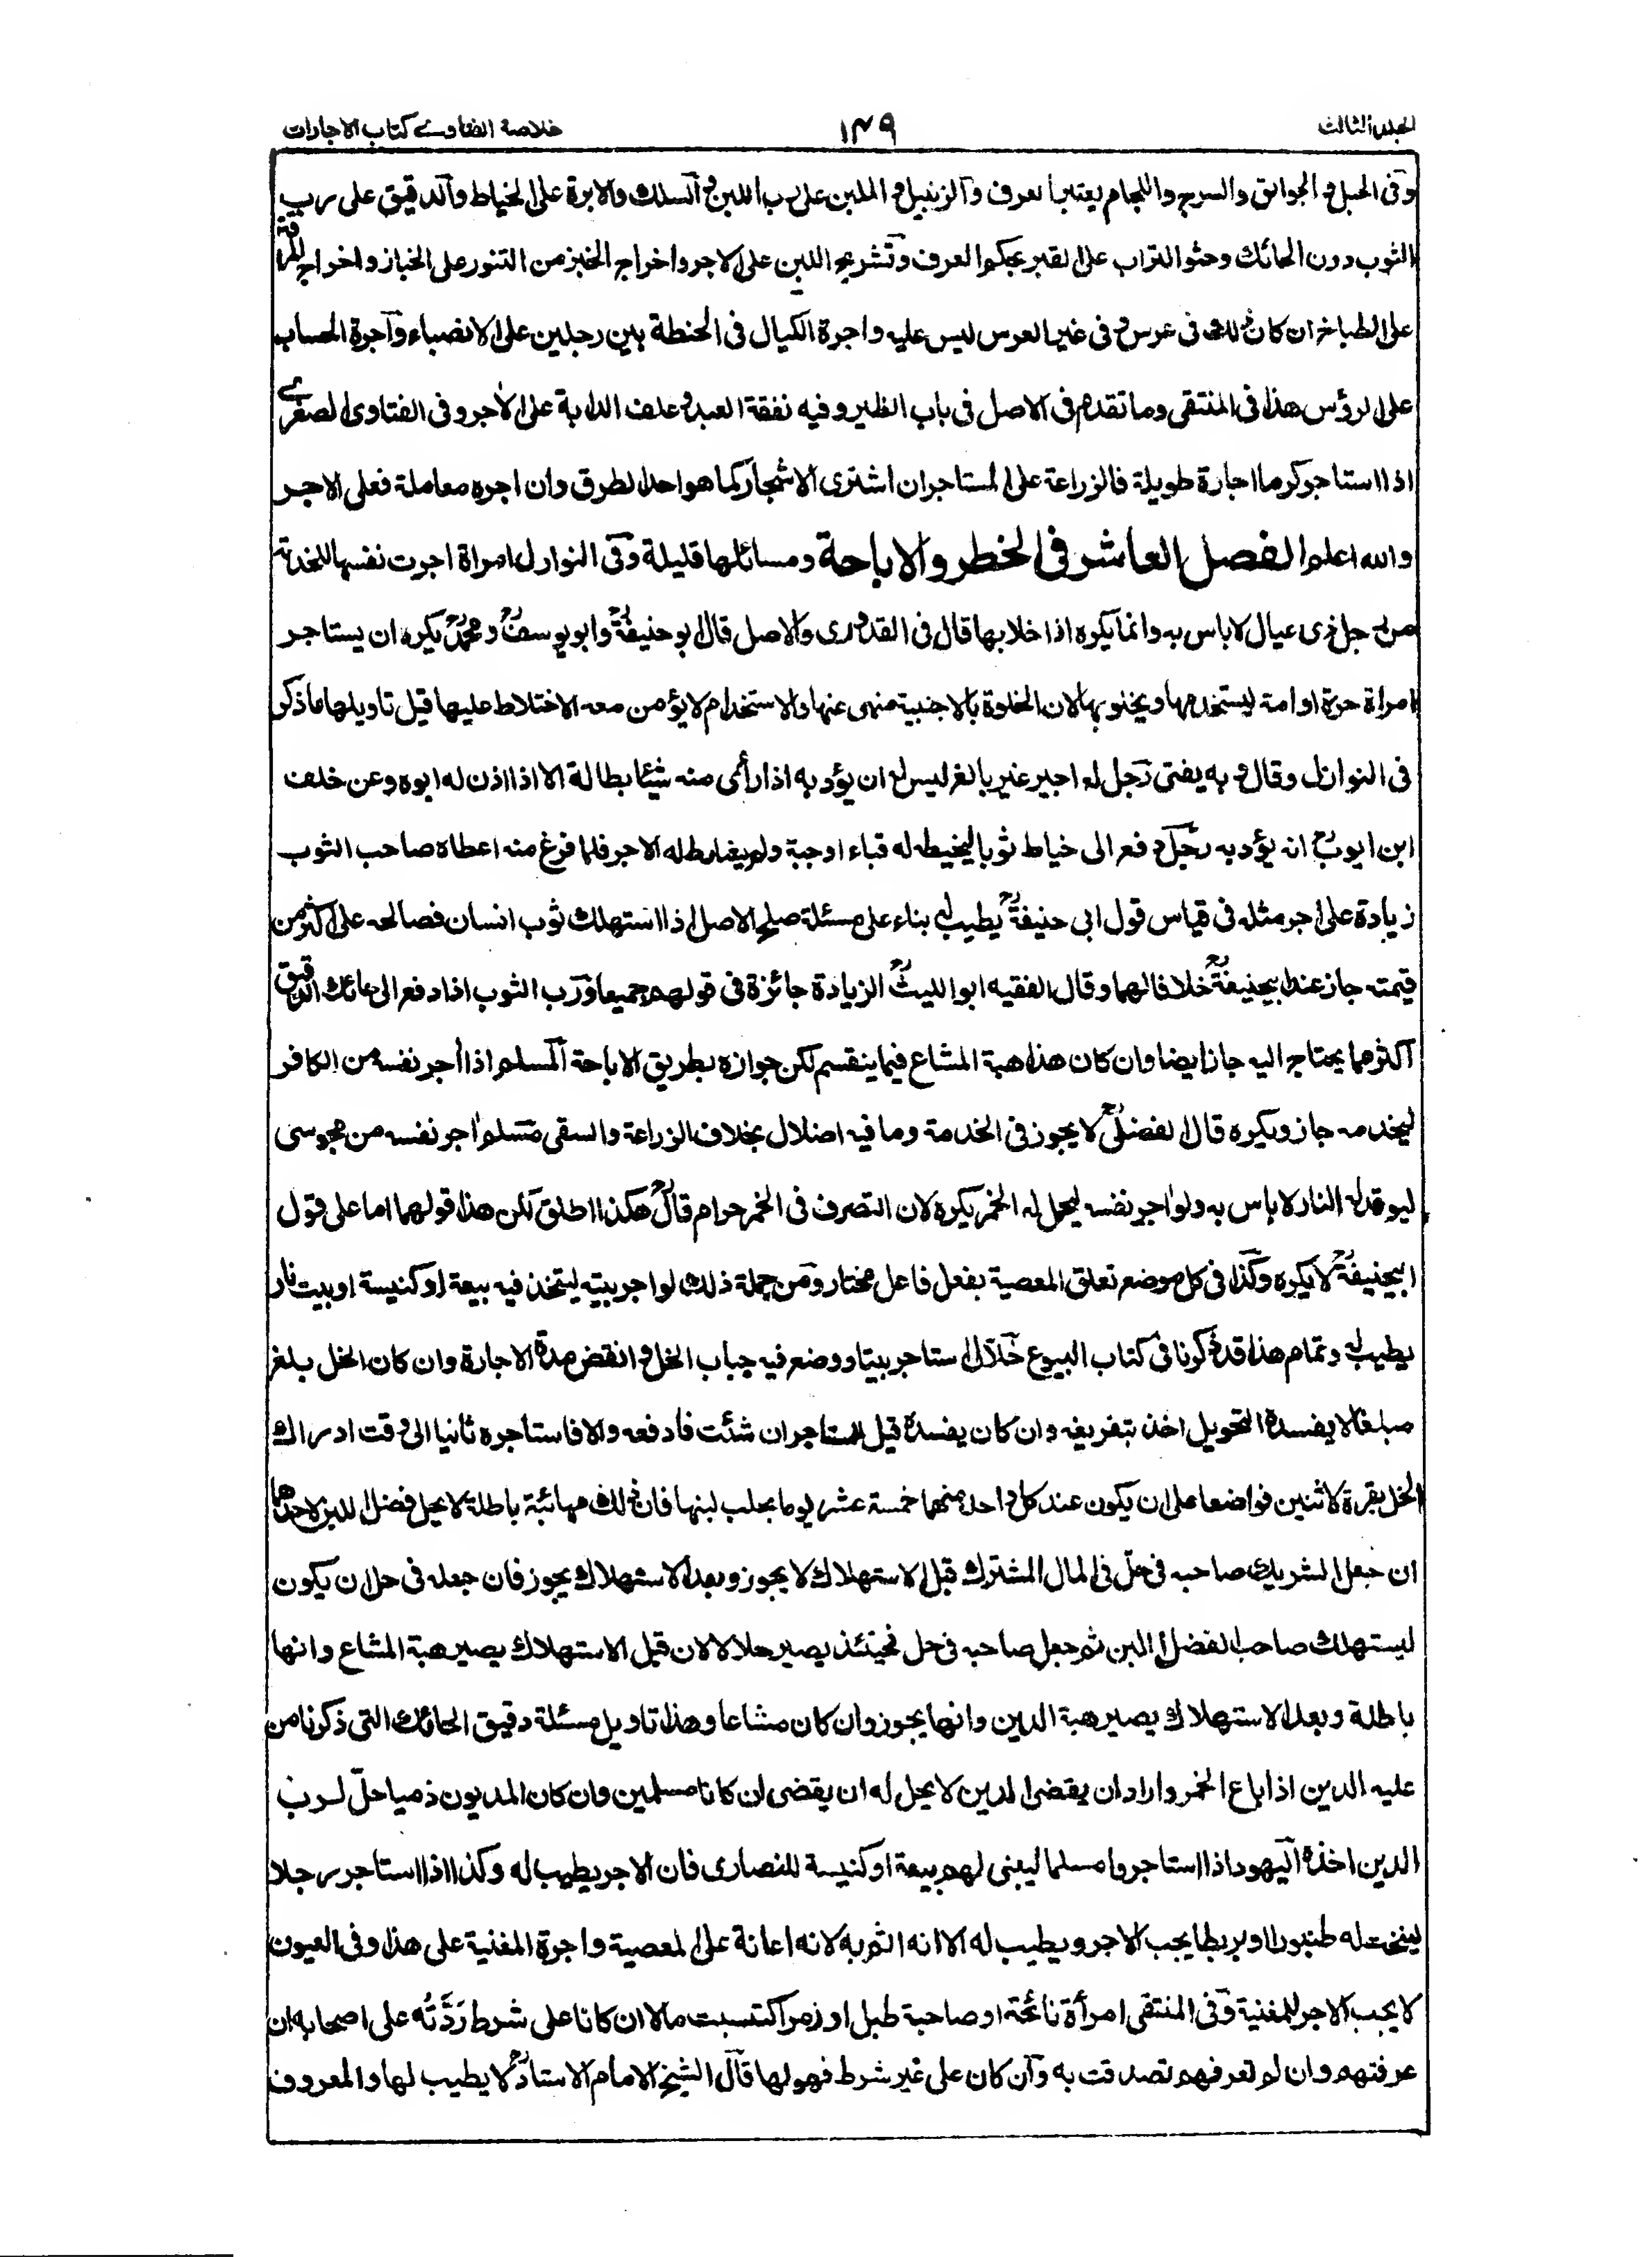 الجلد الثالث
١٤٩
خلاصة الفتاوى كتاب الاجارات
وفى الحبل و الجوالق والسرج واللجام يعتبر العرف والزنبيل و الملبن على رب اللبن و السلك والابرة على الخياط والدقيق على رب
الثوب دون الحائك وحثو التراب على القبر بحكم العرف وتشريج اللبن على الاجر واخراج الخبز من التنور على الخباز واخراج المرقة
على الطباخ ان كان ذلك فى عرس و فى غير العرس ليس عليه واجرة الكيال فى الحنطة بين رجلين على الانصباء وآجرة الحساب
على الرؤس هذا فى المنتقى وما تقدم فى الاصل فى باب الظير وفيه نفقة العبد و علف الدابة على الاجر وفى الفتاوى الصغرى
اذا استاجر كرما اجارة طويلة فالزراعة على المستاجر ان اشترى الاشجار كما هو احد الطرق وان اجره معاملة فعلى الاجر
والله اعلم الفصل العاشر فى الخطر والاباحة ومسائلها قليلة وفى النوازل امراة اجرت نفسها للخدمة
من رجل ذى عيال لا باس به وانما يكره اذا خلا بها قال فى القدورى والاصل قال ابو حنيفةؒ وابو يوسفؒ و محمدؒ يكره ان يستاجر
امراة حرة او امة ليستخدمها ويخلو بها لان الخلوة بالاجنبية منهى عنها والاستخدام لا يؤمن معه الاختلاط عليها قيل تاويلها ما ذكر
فى النوازل وقال و به يفتى رجل له اجير غير بالغ ليس له ان يؤد به اذا رأى منه شيئا بطالة الا اذا اذن له ابوه وعن خلف
ابن ايوبؒ انه يؤد به رجل دفع الى خياط ثوبا ليخيطه له قباء او جبة ولم يقاطله الاجر فلما فرغ منه اعطاه صاحب الثوب
زيادة على اجر مثله فى قياس قول ابى حنيفةؒ يطيب له بناء على مسئلة صلح الاصل اذا استهلك ثوب انسان فصالحه على اكثر من
قيمته جاز عند ابيحنيفةؒ خلافا لهما وقال الفقيه ابو الليثؒ الزيادة جائزة فى قولهم جميعا ورب الثوب اذا دفع الى حائك الدقيق
اكثر مما يحتاج اليه جاز ايضا وان كان هذا هبة المشاع فيما ينقسم لكن جوازه بطريق الاباحة المسلم اذا أجر نفسه من الكافر
ليخدمه جاز ويكره قال الفضلىؒ لا يجوز فى الخدمة وما فيه اضلال بخلاف الزراعة والسقى مسلم اجر نفسه من مجوسى
ليوقد له النار لا باس به ولو اجر نفسه ليحمل له الخمر يكره لان التصرف فى الخمر حرام قالؒ هكذا اطلق لكن هذا قولهما اما على قول
ابيحنيفةؒ لا يكره وكذا فى كل موضع تعلق المعصية بفعل فاعل مختار ومن جملة ذلك لو اجر بيته ليتخذ فيه بيعة او كنيسة او بيت نار
يطيب له وتمام هذا قد ذكرنا فى كتاب البيوع خلال استاجر بيتا ووضع فيه حباب الخل و انقض مدة الاجارة وان كان الخل بلغ
مبلغا لا يفسده التحويل اخذ بتفريغه وان كان يفسده قيل للمستاجر ان شئت فادفعه والا فاستاجره ثانيا الى وقت ادراك
الخل بقرة لاثنين فواضعا على ان يكون عند كل واحد منهما خمسة عشر يوما يحلب لبنها فان ذلك مهائبة باطلة لا يحل فضل اللبن لاحدهما
ان جعل الشريك صاحبه فى حلّ فى المال المشترك قبل الاستهلاك لا يجوز وبعد الاستهلاك يجوز فان جعله فى حل ان يكون
ليستهلك صاحب الفضل اللبن ثم جعل صاحبه فى حل فحينئذ يصير حلالا لان قبل الاستهلاك يصير هبة المشاع وانها
باطلة وبعد الاستهلاك يصير هبة الدين وانها يجوز وان كان مشاعا وهذا تاويل مسئلة دقيق الحائك التى ذكرنا من
عليه الدين اذا باع الخمر واراد ان يقضى الدين لا يحل له ان يقضى ان كانا مسلمين وان كان المديون ذميا حلّ لرب
الدين اخذه اليهود اذا استاجروا مسلما ليبنى لهم بيعة او كنيسة للنصارى فان الاجر يطيب له وكذا اذا استاجر رجلا
لينحت له طنبورا او بربطا يجب الاجر ويطيب له الا انه اثم به لانه اعانة على المعصية واجرة المغنية على هذا وفى العيون
لا يجب الاجر للمغنية وفى المنتقى امرأة نائحة او صاحبة طبل او زمر اكتسبت مالا ان كانا على شرط رَدَّتْه على اصحابه ان
عرفتهم وان لم تعرفهم تصدقت به وآن كان على غير شرط فهو لها قال الشيخ الامام الاستاذؒ لا يطيب لها والمعروف